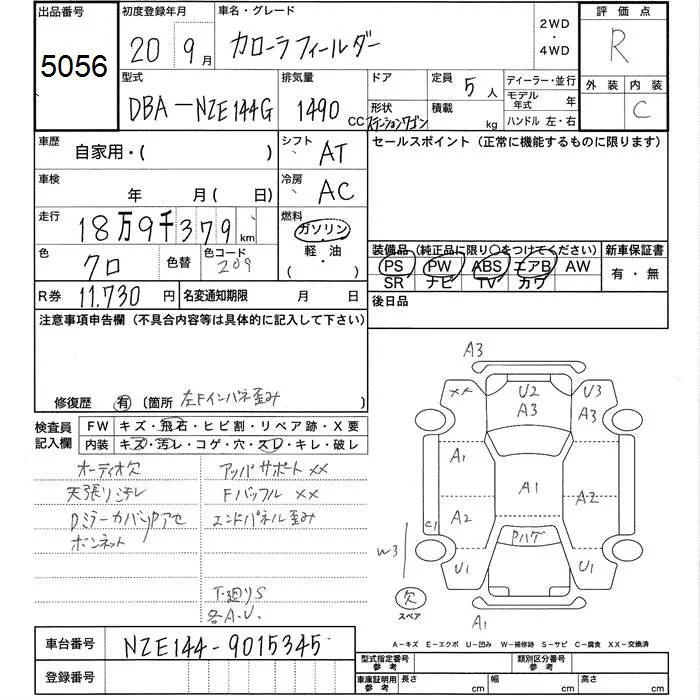 出品番号 初度登録年月 車名・グレード 2WD・4WD 評価点
5056 20 9月 カローラフィールダー R
型式 排気量 ドア 定員 5人 ディーラー・並行 外装 内装
DBA-NZE144G 1490 CC 形状 ステーションワゴン 積載 kg モデル年式 年 C
ハンドル 左・右
車歴 自家用・( ) シフト AT セールスポイント(正常に機能するものに限ります)
車検 年 月( 日) 冷房 AC
走行 18万9千379km 燃料 ガソリン・軽油( )
色 クロ 色替 色コード 209
装備品(純正品に限り○をつけてください) 新車保証書
PS PW ABS エアB AW 有・無
SR ナビ TV カワ
R券 11,730円 名変通知期限 月 日 後日品
注意事項申告欄(不具合内容等は具体的に記入して下さい)
修復歴 有 (箇所 左Fインパネ歪み
検査員記入欄 FW キズ・飛石・ヒビ割・リペア跡・X要
内装 キズ・汚レ・コゲ・穴・スレ・キレ・破レ
オーディオ欠 アッパサポートXX
天張り汚レ Fバッフル XX
Dミラーカバー アセ エンドパネル歪み
ボンネット
下廻りS
各A.U.
A3
XX U2 U3
A3
A1
A1 A2
A2
C1
W3 Pハゲ
U1 U1
欠
スペア
A1
車台番号 NZE144-9015345
登録番号
A-キズ E-エクボ U-凹み W-補修跡 S-サビ C-腐食 XX-交換済
型式指定番号 参考 類別区分番号 参考
車庫証明用 参考 長さ cm 幅 cm 高さ cm